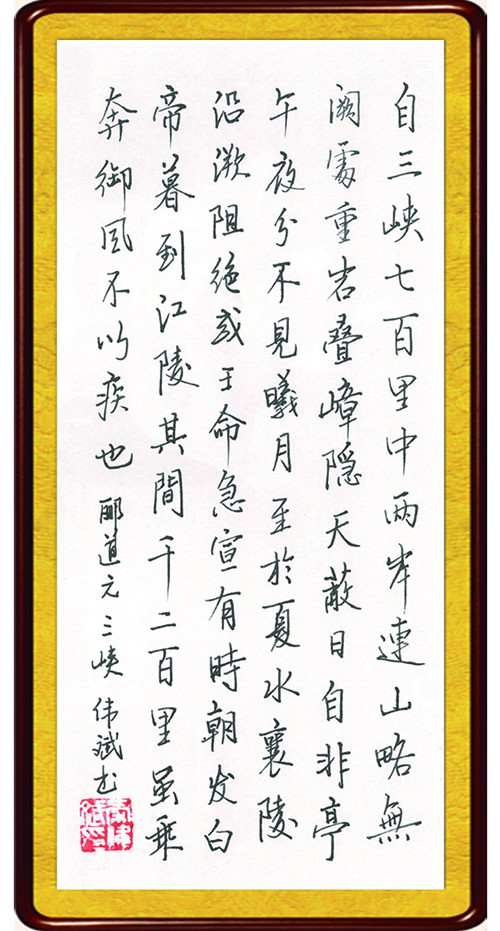 自三峡七百里中两岸連山略無
阙處重岩叠嶂隐天蔽日自非亭
午夜分不見曦月至於夏水襄陵
沿溯阻绝或王命急宣有時朝发白
帝暮到江陵其間千二百里虽乘
奔御风不以疾也 郦道元三峡 伟斌书